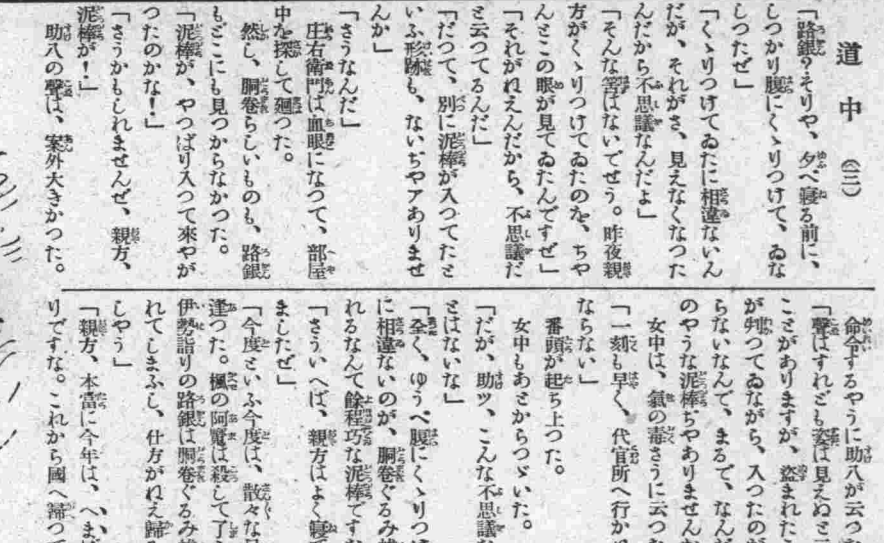 道中 (三)
「路銀?そりや、夕べ寢る前に、
しつかり腹にくゝりつけて、ゐな
しつたぜ」
「くゝりつけてゐたに相違ないん
だが、それがさ、見えなくなつた
んだから不思議なんだよ」
「そんな筈はないでせう。昨夜親
方がくゝりつけてゐたのを、ちや
んとこの眼が見てゐたんですぜ」
「それがねえんだから、不思議だ
と云つてるんだ」
「だつて、別に泥棒が入つてたと
いふ形跡も、ないぢやアありませ
んか」
「さうなんだ」
庄右衛門は血眼になつて、部屋
中を探して廻つた。
然し、胴卷らしいものも、路銀
もどこにも見つからなかつた。
「泥棒が、やつぱり入つて來やが
つたのかな!」
「さうかもしれませんぜ、親方、
泥棒が!」
助八の聲は、案外大きかつた。
命令するやうに助八が云つ
「聲はすれども姿は見えぬと
ことがありますが、盜まれた
が判つてゐながら、入つたのが
らないなんて、まるで、なんだ
のやうな泥棒ぢやありませんか
女中は、氣の毒さうに云つ
「一刻も早く、代官所へ行か
ならない」
番頭が起ち上つた。
女中もあとからつゞいた。
「だが、助ッ、こんな不思議な
とはないな」
「全く、ゆうべ腹にくゝりつけ
に相違ないのが、胴卷ぐるみ
れるなんて餘程巧な泥棒です
「さういへば、親方はよく寢
ましたぜ」
「今度といふ今度は、散々な
逢つた。楓の阿魔は殺して了
伊勢詣りの路銀は胴卷ぐるみ
れてしまふし、仕方がねえ歸
しやう」
「親方、本當に今年は、へま
りですな。これから國へ歸つて